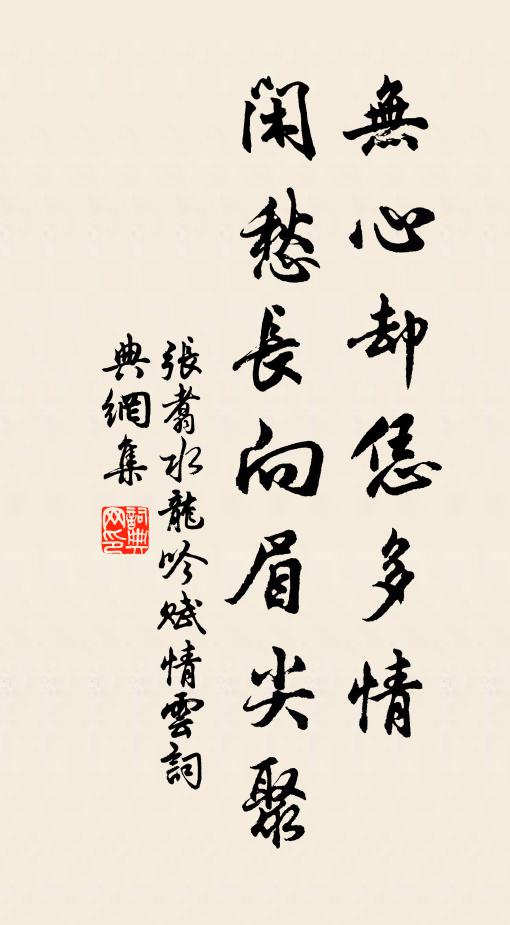 無心却恁多情
閑愁長向眉尖聚
張翥水龍吟賦情雲詞
典網集
詞典
网印